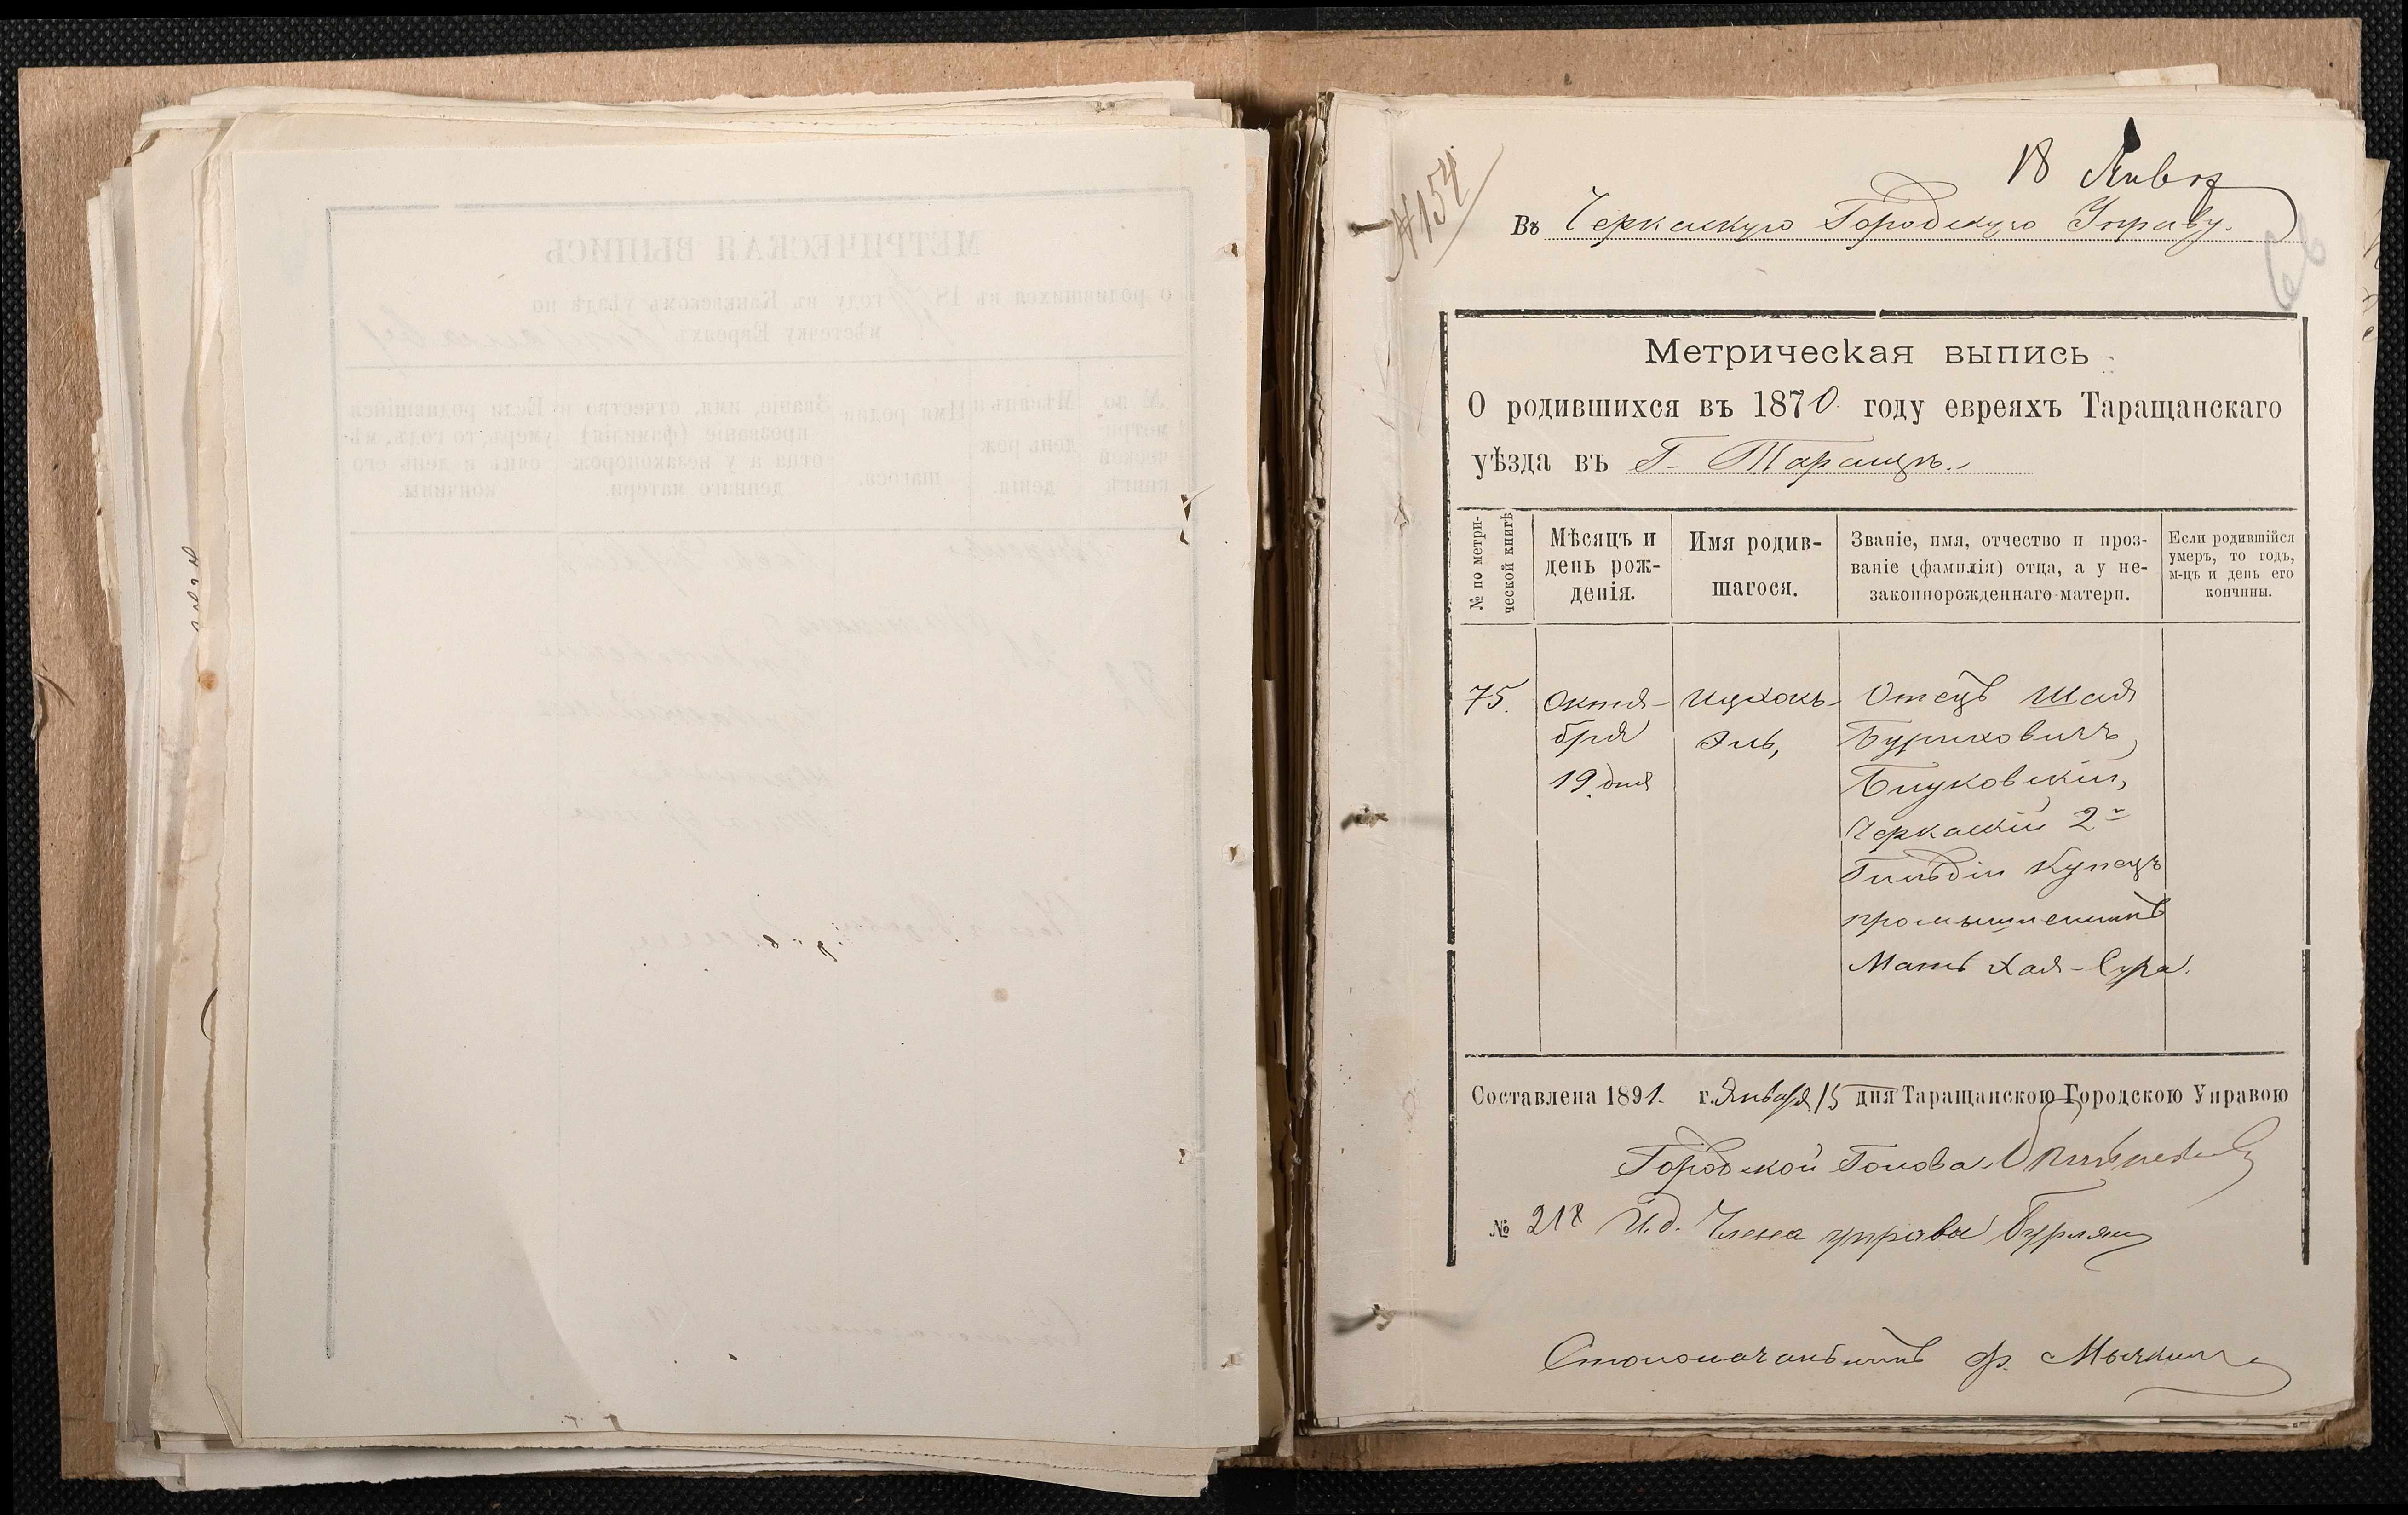 № 154
18 Январ
Въ Черкаскую Городскую Управу.
66
Метрическая выпись
О родившихся въ 1870 году евреяхъ Таращанскаго
уѣзда въ Г. Таращѣ.
№ по метри-
ческой книгѣ
Мѣсяцъ и
день рож-
денія.
Имя родив-
шагося.
Званіе, имя, отчество и проз-
ваніе (фамилія) отца, а у не-
законнорожденнаго матери.
Если родившійся
умеръ, то годъ,
м-цъ и день его
кончины.
75.
Октя-
бря
19 дня
Ицхокъ-
Эль,
Отецъ Шая
Буриховичъ,
Билуковскій,
Черкаскій 2й
Гильдіи Купецъ
промышленникъ
Мать Хая-Сура.
Составлена 1891. г. Января 15 дня Таращанскою Городскою Управою
Городской Голова
№ 218 И. д. Члена управы
Столоначальникъ
МЕТРИЧЕСКАЯ ВЫПИСЬ
о родившихся въ 18 году въ Каневскомъ уѣздѣ по
мѣстечку Евреяхъ
№ по
метри-
ческой
книгѣ.
Мѣсяцъ и
день рож-
денія.
Имя родив-
шагося.
Званіе, имя, отчество и
прозваніе (фамилія)
отца а у незаконорож-
деннаго матери.
Если родившійся
умеръ, то годъ, мѣ-
сяцъ и день его
кончины.